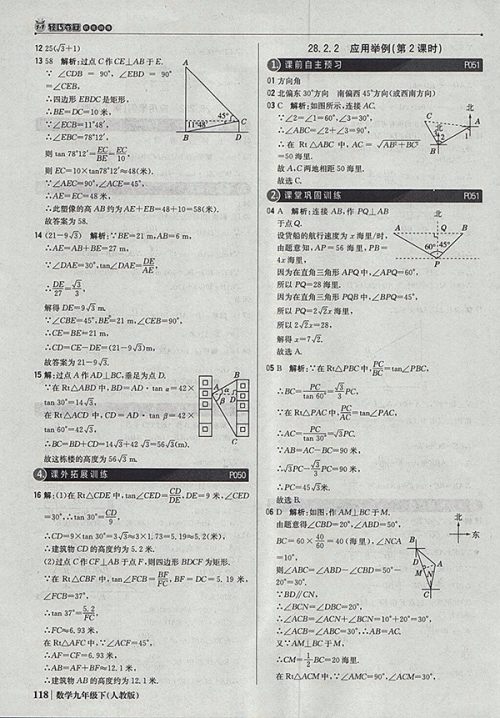 轻巧夺冠
12 25(√3+1)
13 58 解析:过点C作CE⊥AB于E.
∵ ∠CDB = 90°, ∠EBD = 90°
=∠CEB,
∴四边形EBDC是矩形,
∴BE=DC=10米,
∵∠ECB=11°48′,
∴∠EBC=78°12′,
则tan 78°12′=EC/BE=EC/10,
则EC=10×tan78°12′≈48(米).
∵∠AEC=90°,∠ACE=45°,
∴AE=EC=48米,
∴此塑像的高AB约为AE+EB=48+10=58(米).
故答案为58.
14 (21-9√3) 解析:∵BE=21 m,AB=6 m,
∴AE=AB+BE=27 m,
∵∠DAE=30°,tan∠DAE=DE/AE,
∴DE/27=√3/3,
解得DE=9√3 m.
∵∠CBE=45°,BE=21 m,∠CEB=90°,
∴CE=BE=21 m,
∴CD=CE-DE=(21-9√3)m,
故答案为21-9√3.
15 解:过点A作AD⊥BC,垂足为点D.
在Rt△ABD中,BD=AD·tan α=42×
tan 30°=14√3,
在Rt△ACD中,CD=AD·tan β=42×
tan 60°=42√3,
∴BC=BD+CD=14√3+42√3=56√3(m).
故这栋楼的高度为56√3 m.
4 课外拓展训练 P050
16 解:(1)在Rt△CDE中,tan∠CED=CD/DE,DE=9米,∠CED
=30°,∴tan 30°=CD/9,
∴CD=9×tan 30°=3√3≈3×1.73=5.19≈5.2(米),
∴建筑物CD的高度约为5.2米.
(2)过点C作CF⊥AB于点F,则四边形BDCF为矩形.
∵在Rt△CBF中,tan∠FCB=BF/FC,BF=DC=5.19米,
∠FCB=37°,
∴tan 37°=5.2/FC,
∴FC≈6.93米,
在Rt△AFC中,∵∠ACF=45°,
∴AF=CF=6.93米,
∴AB=AF+BF≈12.1米,
∴建筑物AB的高度约为12.1米.
118 数学九年级下(人教版)
28.2.2 应用举例(第2课时)
1 课前自主预习 P051
01 方向角
02 北偏东30°方向 南偏西45°方向(或西南方向)
03 C 解析:如图所示,连接AC.
∵∠2=∠1=60°,∠3=30°,
∴∠ABC=∠2+∠3=90°,
∴在Rt△ABC中,AC=√(AB²+BC²)
=50海里.
故A,C两地相距50海里.
故选C.
2 课堂巩固训练 P051
04 A 解析:连接AB,作PQ⊥AB
于点Q.
设货船的航行速度为x海里/时,
由题意知,AP=56海里,PB=
4x海里,
因为在直角三角形APQ中,∠APQ=60°,
所以PQ=28海里.
因为在直角三角形PQB中,∠BPQ=45°,
所以PQ=2√2x海里,
所以2√2x=28,
解得x=7√2.
故选A.
05 B 解析:∵在Rt△PBC中,PC/BC=tan∠PBC,
∴BC=PC/tan 60°=√3/3 PC.
∵在Rt△PAC中,PC/AC=tan∠PAC,
∴AC=PC/tan 30°=√3PC.
∵AB=AC-BC=90米,
∴√3PC-√3/3 PC=90米,
∴PC=45√3米.
故选B.
06 D 解析:如图,作AM⊥BC于M.
由题意得∠CBD=20°,∠ABD=50°,
BC=60×40/60=40(海里),∠NCA
=10°,
则∠ABC=∠ABD-∠CBD=50°-
20°=30°.
∵BD∥CN,
∴∠BCN=∠DBC=20°,
∴∠ACB=∠ACN+∠BCN=10°+20°=30°,
∴∠ACB=∠ABC=30°,∴AB=AC.
又∵AM⊥BC于M,
∴CM=1/2 BC=20海里.
在Rt△ACM中,∵∠AMC=90°,∠ACM=30°,